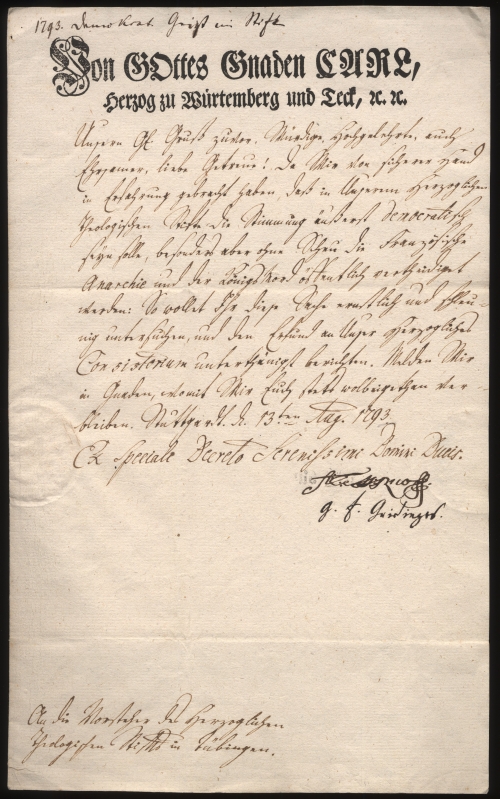 1793. Demokrat. Geist im Stift
Von GOttes Gnaden CARL,
Herzog zu Würtemberg und Teck, ꝛc. ꝛc.
Unsern Gr. Gruß zuvor, Würdige, Hochgelehrte, auch
Ehrsamer, liebe Getreue! Da Wir von sicherer Hand
in Erfahrung gebracht haben, daß in Unserem Herzoglichen
Theologischen Stifte die Stimmung äußerst democratisch
seyn solle, besonders aber ohne Scheu die Französische
Anarchie und der Königsmord öffentlich vertheidiget
werden: So wollet Ihr diese Sache ernstlich und schleu-
nig untersuchen, und den Erfund an Unser Herzogliches
Consistorium unterthänigst berichten. Melden Wir
in Gnaden, womit Wir Euch stets wolbeigethan ver-
bleiben. Stuttgardt. d. 13ten Aug. 1793.
Ex Speciale Decreto Serenissimi Domini Ducis.
An die Vorsteher des Herzoglichen
Theologischen Stifts in Tübingen.